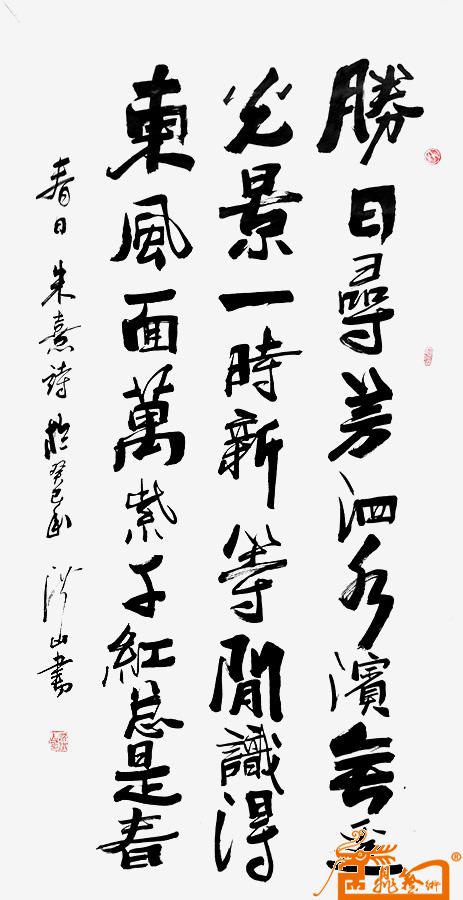 勝日尋芳泗水濱無邊
光景一時新等閒識得
東風面萬紫千紅总是春
春日 朱熹詩 於癸巳 山書
藝術